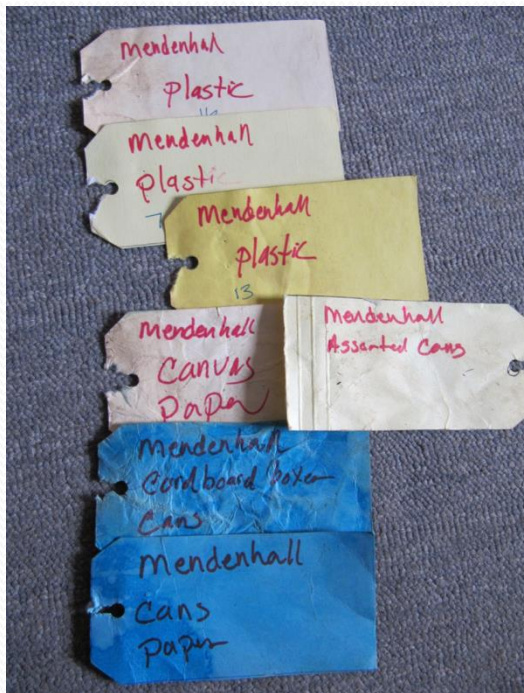 Mendenhall
plastic
Mendenhall
plastic
7
Mendenhall
plastic
13
Mendenhall
Canvas
Paper
Mendenhall
Assorted Cans
Mendenhall
Cardboard boxes
Cans
Mendenhall
Cans
Paper